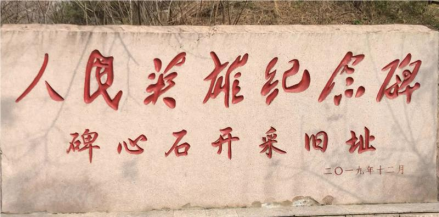 人民英雄纪念碑
碑心石开采旧址
二〇一九年十二月